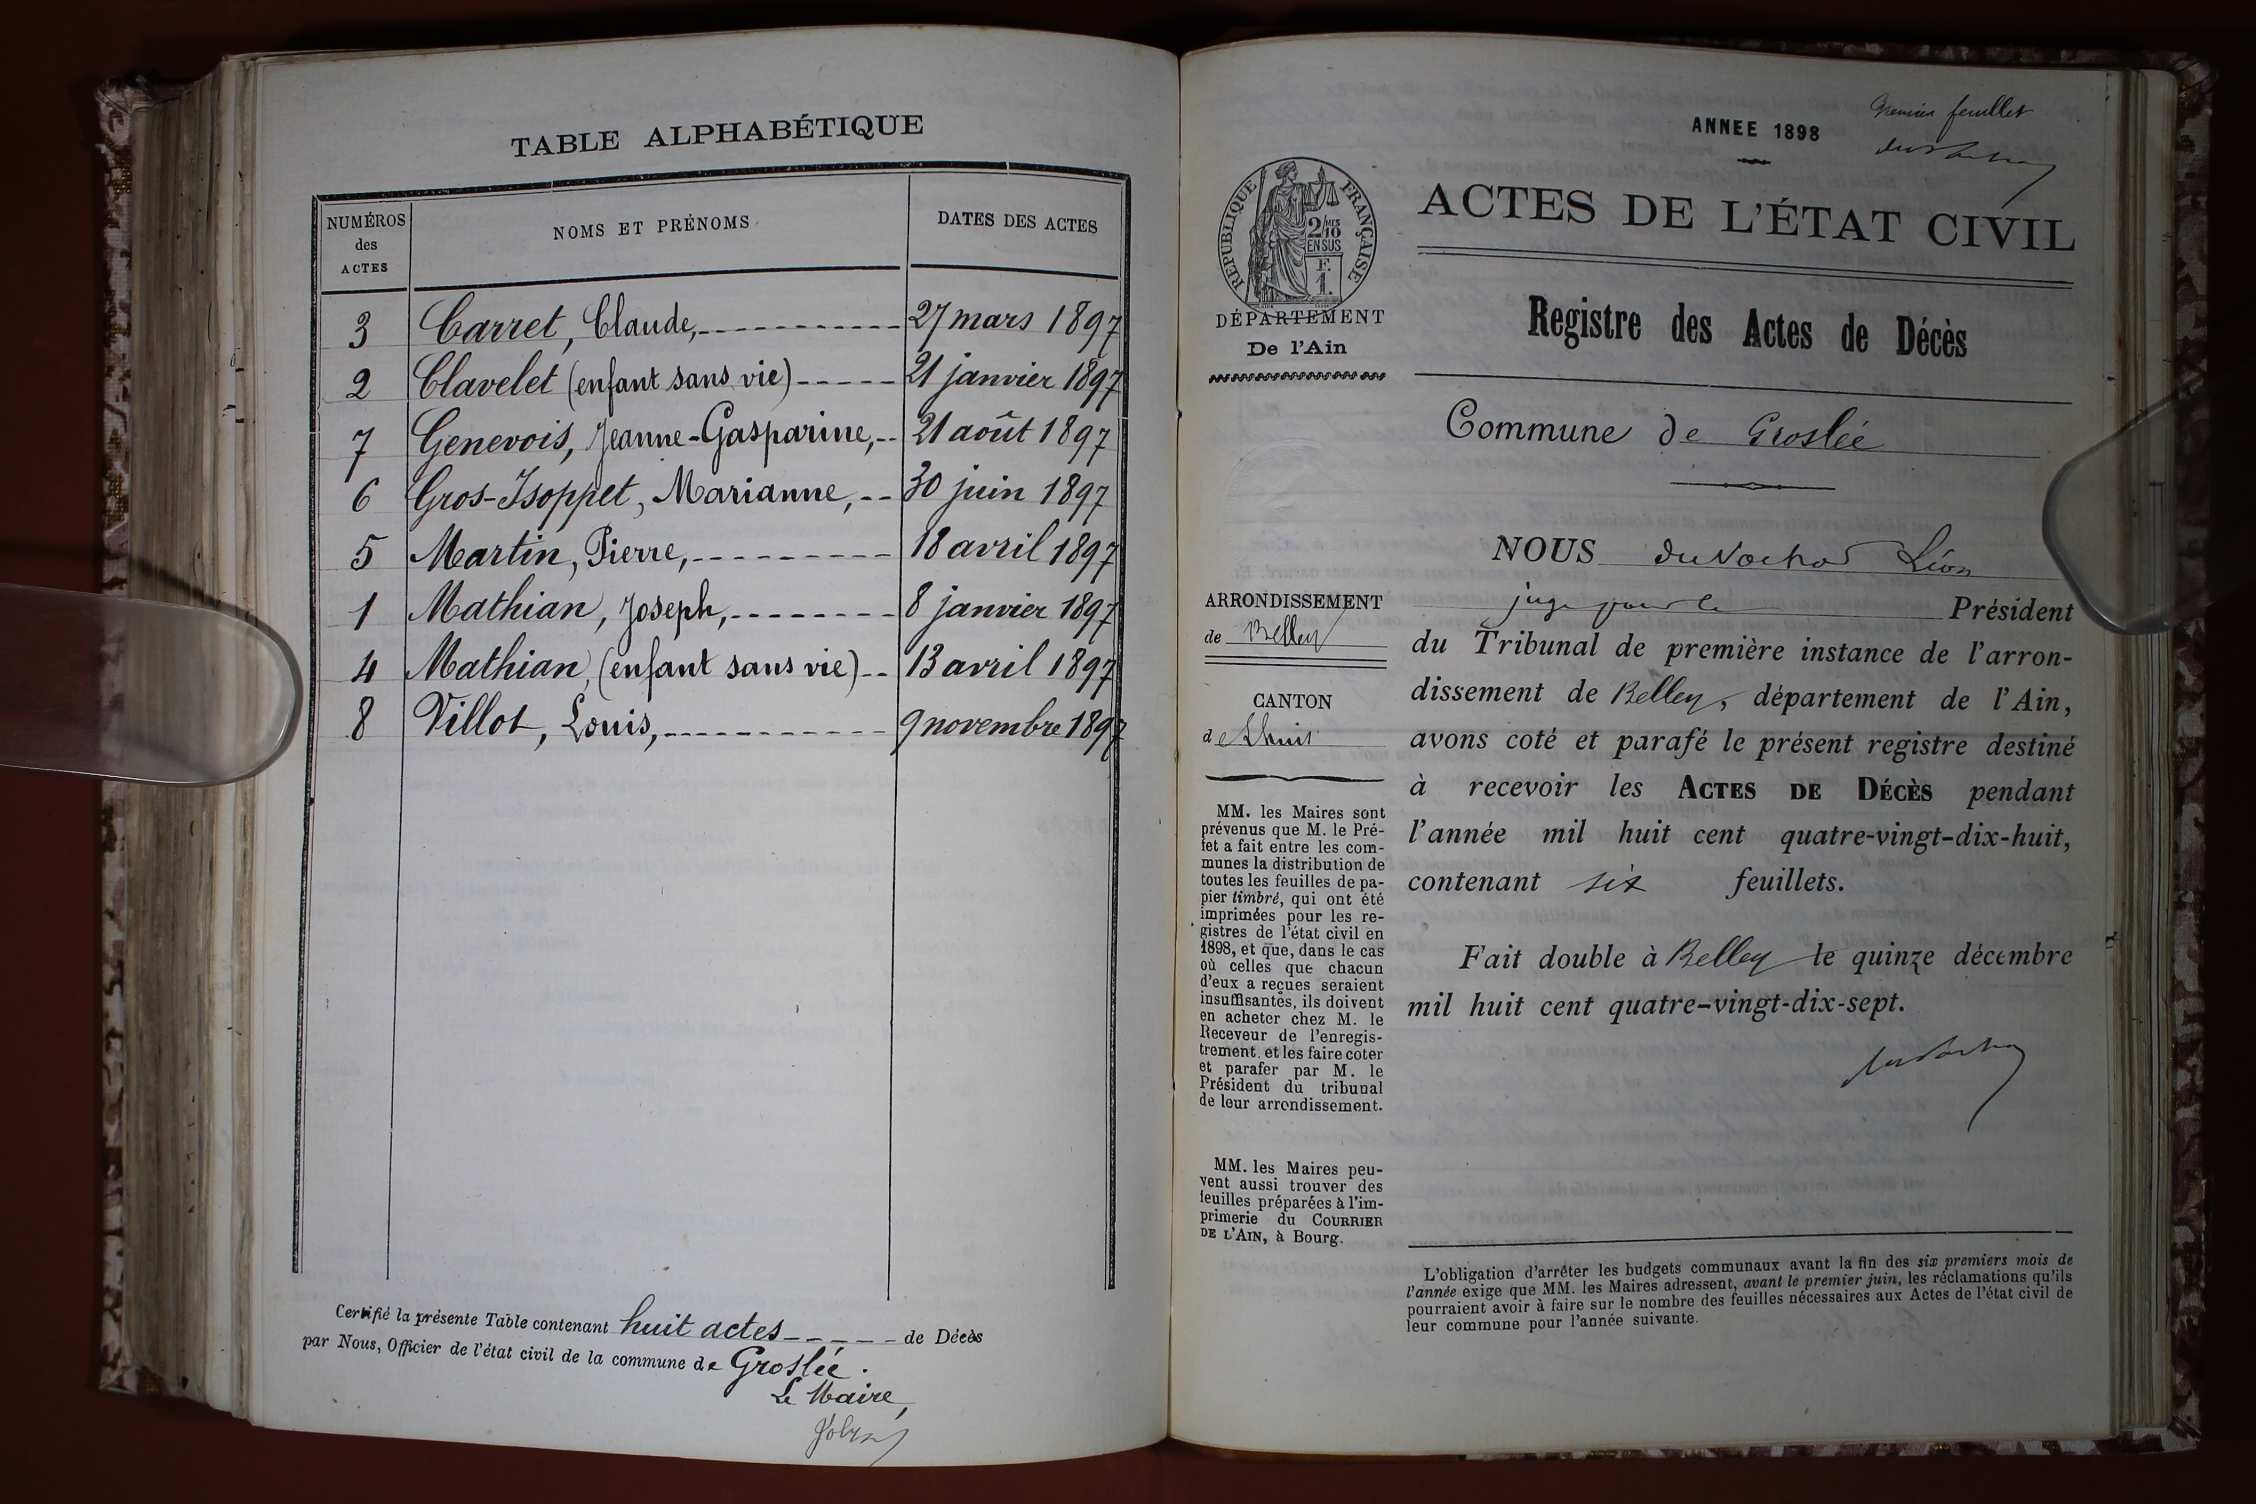 TABLE ALPHABÉTIQUE
NUMÉROS des ACTES
NOMS ET PRÉNOMS
DATES DES ACTES
3 Carret, Claude, 27 mars 1897
2 Clavelet (enfant sans vie) 21 janvier 1897
7 Genevois, Jeanne-Gasparine, 21 août 1897
6 Gros-Isoppet, Marianne, 30 juin 1897
5 Martin, Pierre, 18 avril 1897
1 Mathian, Joseph, 8 janvier 1897
4 Mathian, (enfant sans vie) 13 avril 1897
8 Villot, Louis, 9 novembre 1897
Certifié la présente Table contenant huit actes de Décès
par Nous, Officier de l'état civil de la commune de Groslée.
Le Maire,
premier feuillet
ANNEE 1898
RÉPUBLIQUE FRANÇAISE
2/10
EN SUS
F.
1.
DÉPARTEMENT
De l'Ain
ACTES DE L'ÉTAT CIVIL
Registre des Actes de Décès
Commune de Groslée
ARRONDISSEMENT
de Belley
CANTON
de Lhuis
MM. les Maires sont
prévenus que M. le Pré-
fet a fait entre les com-
munes la distribution de
toutes les feuilles de pa-
pier timbré, qui ont été
imprimées pour les re-
gistres de l'état civil en
1898, et que, dans le cas
où celles que chacun
d'eux a reçues seraient
insuffisantes, ils doivent
en acheter chez M. le
Receveur de l'enregis-
trement, et les faire coter
et parafer par M. le
Président du tribunal
de leur arrondissement.
MM. les Maires peu-
vent aussi trouver des
feuilles préparées à l'im-
primerie du COURRIER
DE L'AIN, à Bourg.
NOUS Léon
juge pour le Président
du Tribunal de première instance de l'arron-
dissement de Belley, département de l'Ain,
avons coté et parafé le présent registre destiné
à recevoir les ACTES DE DÉCÈS pendant
l'année mil huit cent quatre-vingt-dix-huit,
contenant six feuillets.
Fait double à Belley le quinze décembre
mil huit cent quatre-vingt-dix-sept.
L'obligation d'arrêter les budgets communaux avant la fin des six premiers mois de
l'année exige que MM. les Maires adressent, avant le premier juin, les réclamations qu'ils
pourraient avoir à faire sur le nombre des feuilles nécessaires aux Actes de l'état civil de
leur commune pour l'année suivante.